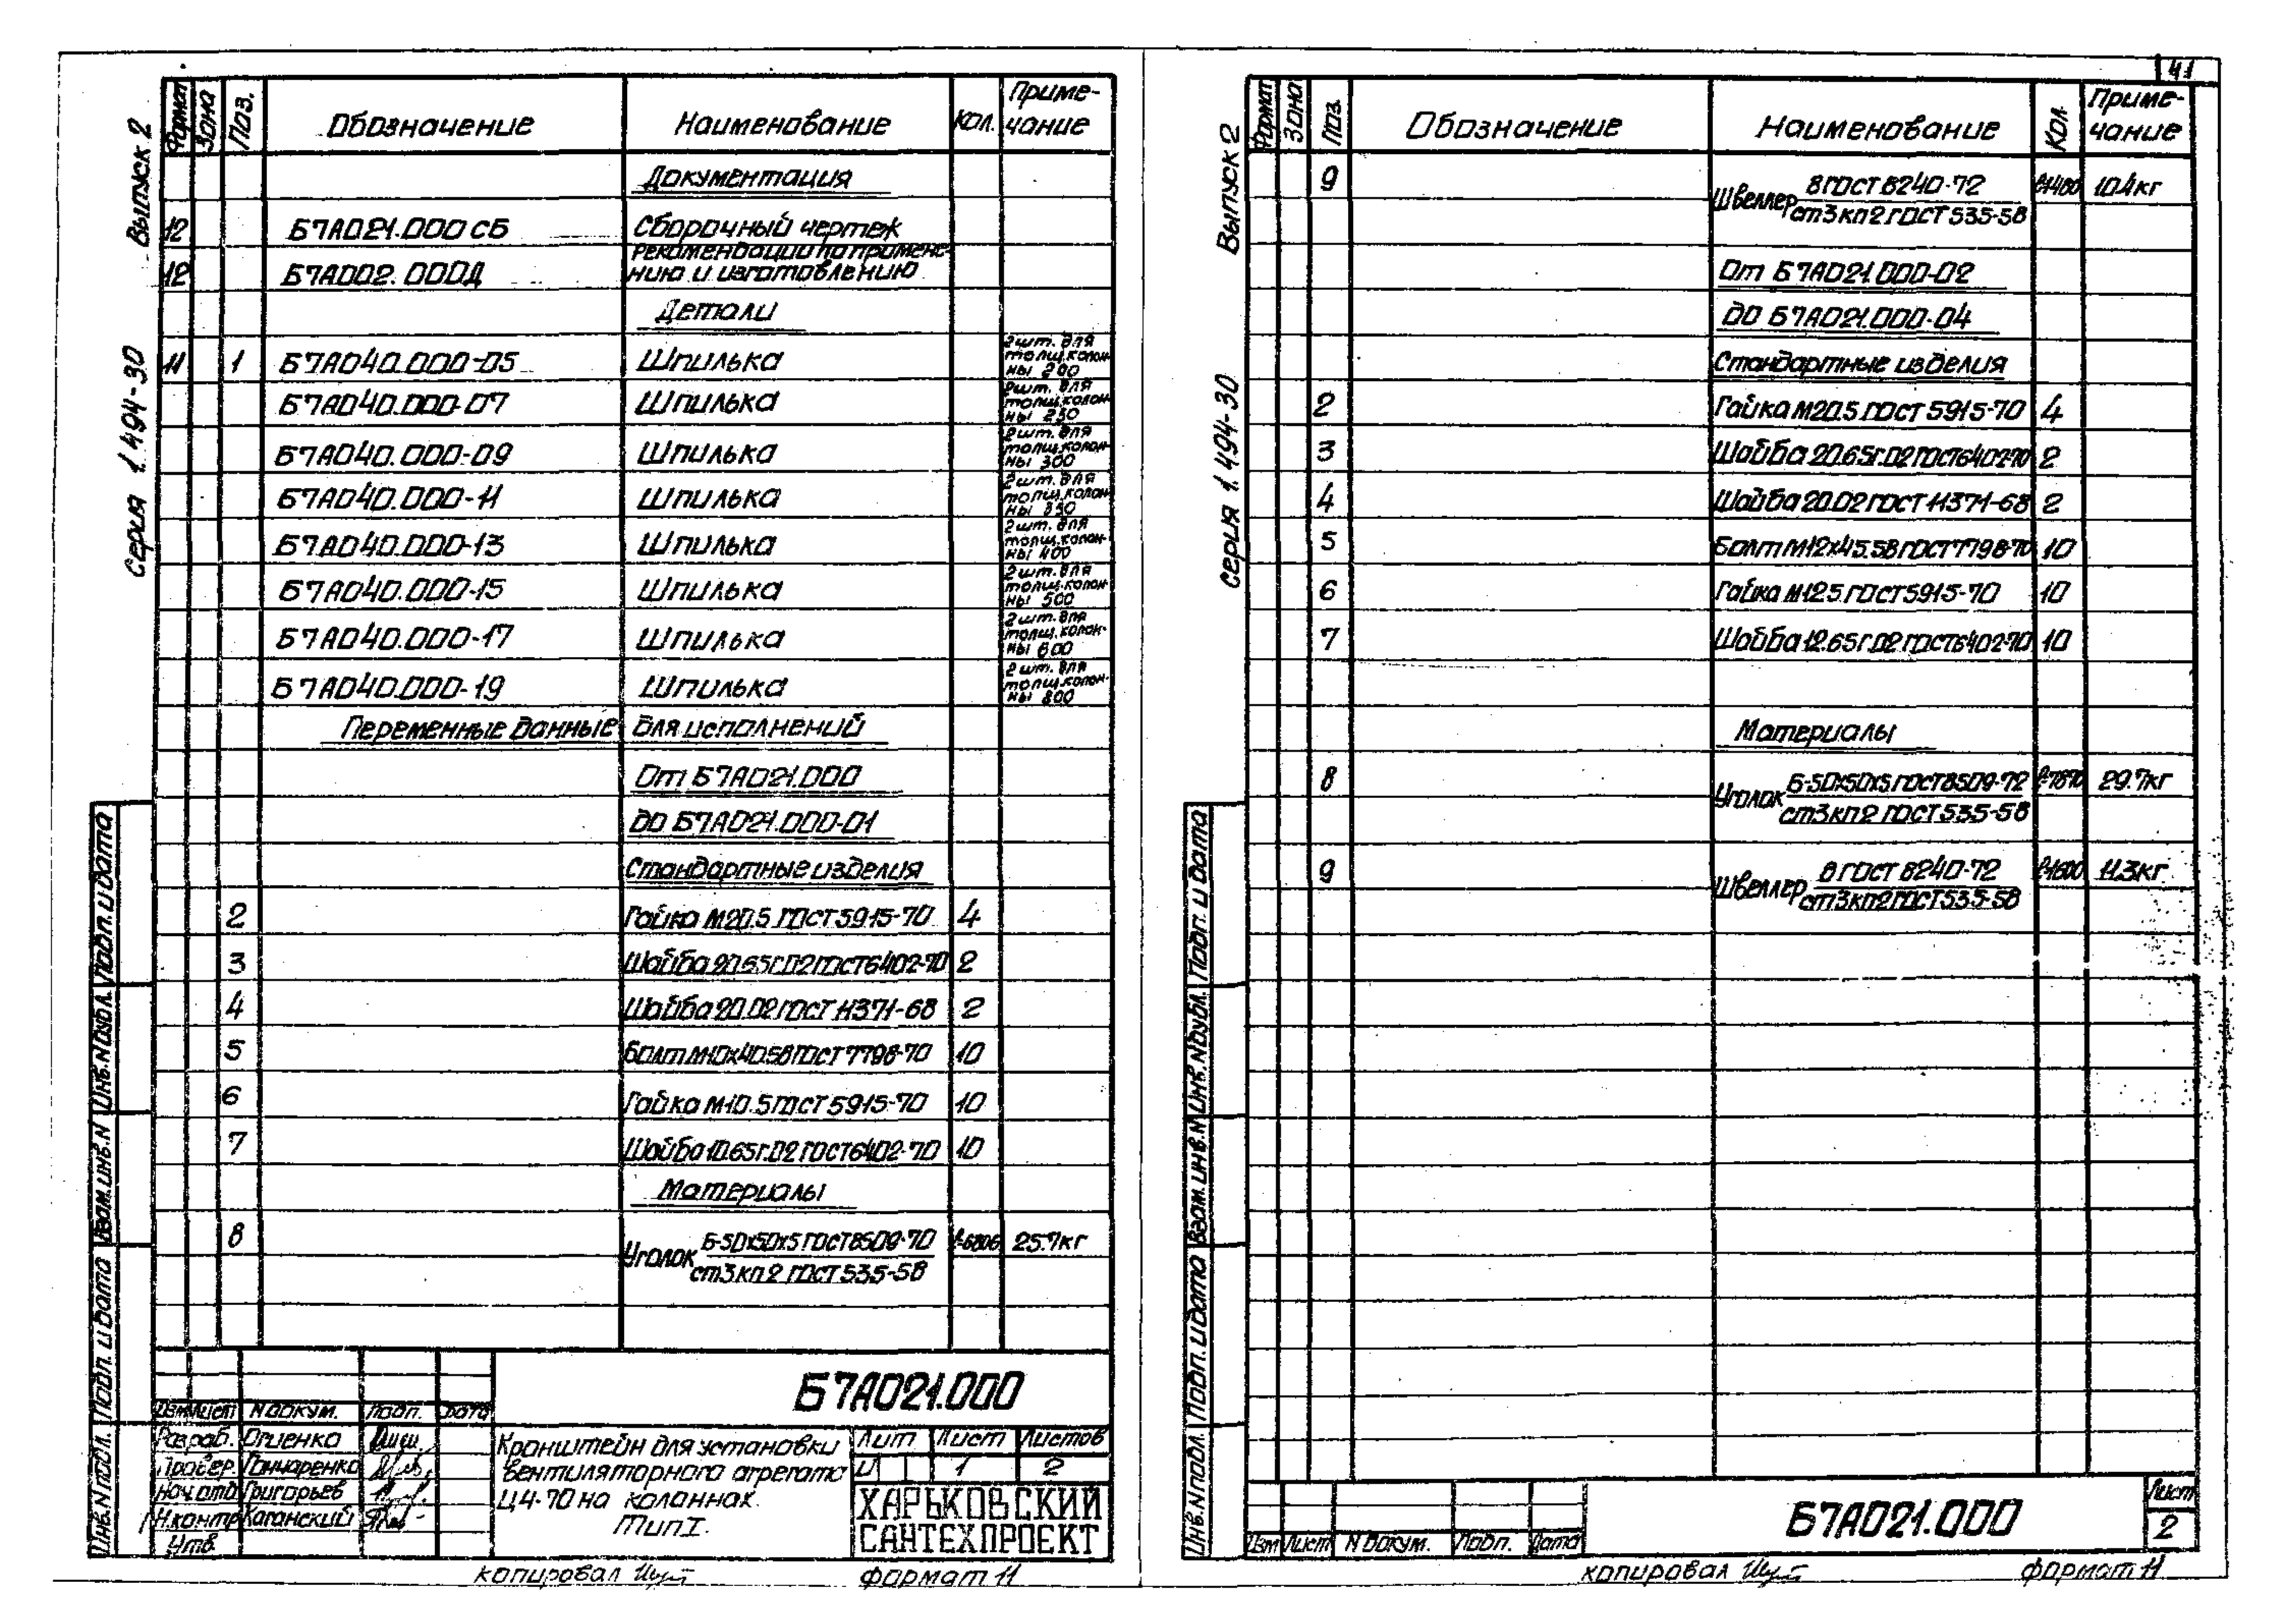 41
Серия 1.494-30 Выпуск 2
Формат Зона Поз. Обозначение Наименование Кол. Приме-
чание
Документация
12 Б7А021.000 СБ Сборочный чертеж
12 Б7А002.000Д Рекомендации по примене-
нию и изготовлению
Детали
11 1 Б7А040.000-05 Шпилька 2шт. для
толщ.колон-
ны 200
Б7А040.000-07 Шпилька 2шт. для
толщ.колон-
ны 250
Б7А040.000-09 Шпилька 2шт. для
толщ.колон-
ны 300
Б7А040.000-11 Шпилька 2шт. для
толщ.колон-
ны 350
Б7А040.000-13 Шпилька 2шт. для
толщ.колон-
ны 400
Б7А040.000-15 Шпилька 2шт. для
толщ.колон-
ны 500
Б7А040.000-17 Шпилька 2шт. для
толщ.колон-
ны 600
Б7А040.000-19 Шпилька 2шт. для
толщ.колон-
ны 800
Переменные данные для исполнений
От Б7А021.000
до Б7А021.000-01
Стандартные изделия
2 Гайка М20.5 ГОСТ 5915-70 4
3 Шайба 20.65Г.02 ГОСТ 6402-70 2
4 Шайба 20.02 ГОСТ 11371-68 2
5 Болт М10х40.58 ГОСТ 7798-70 10
6 Гайка М10.5 ГОСТ 5915-70 10
7 Шайба 10.65Г.02 ГОСТ 6402-70 10
Материалы
8 Уголок Б-50х50х5 ГОСТ 8509-70 ℓ-6806 25.7кг
ст3кп2 ГОСТ 535-58
Б7А021.000
Изм Лист N докум. Подп. Дата
Разраб. Огиенко
Провер. Гончаренко
Нач.отд Григорьев
Н.контр Каганский
Утв.
Кронштейн для установки
вентиляторного агрегата
Ц4-70 на колоннах.
Тип I.
Лит Лист Листов
И 1 2
ХАРЬКОВСКИЙ
САНТЕХПРОЕКТ
Инв.N подл. Подп. и дата Взам.инв.N Инв.N дубл. Подп. и дата
копировал формат 11
Серия 1.494-30 Выпуск 2
Формат Зона Поз. Обозначение Наименование Кол. Приме-
чание
9 Швеллер 8 ГОСТ 8240-72 ℓ-1480 10.4кг
ст3кп2 ГОСТ 535-58
От Б7А021.000-02
до Б7А021.000-04
Стандартные изделия
2 Гайка М20.5 ГОСТ 5915-70 4
3 Шайба 20.65Г.02 ГОСТ 6402-70 2
4 Шайба 20.02 ГОСТ 11371-68 2
5 Болт М12х45.58 ГОСТ 7798-70 10
6 Гайка М12.5 ГОСТ 5915-70 10
7 Шайба 12.65Г.02 ГОСТ 6402-70 10
Материалы
8 Уголок Б-50х50х5 ГОСТ 8509-72 ℓ-7870 29.7кг
ст3кп2 ГОСТ 535-58
9 Швеллер 8 ГОСТ 8240-72 ℓ-1600 11.3кг
ст3кп2 ГОСТ 535-58
Изм Лист N докум. Подп. Дата
Б7А021.000
Лист
2
Инв.N подл. Подп. и дата Взам.инв.N Инв.N дубл. Подп. и дата
копировал формат 11